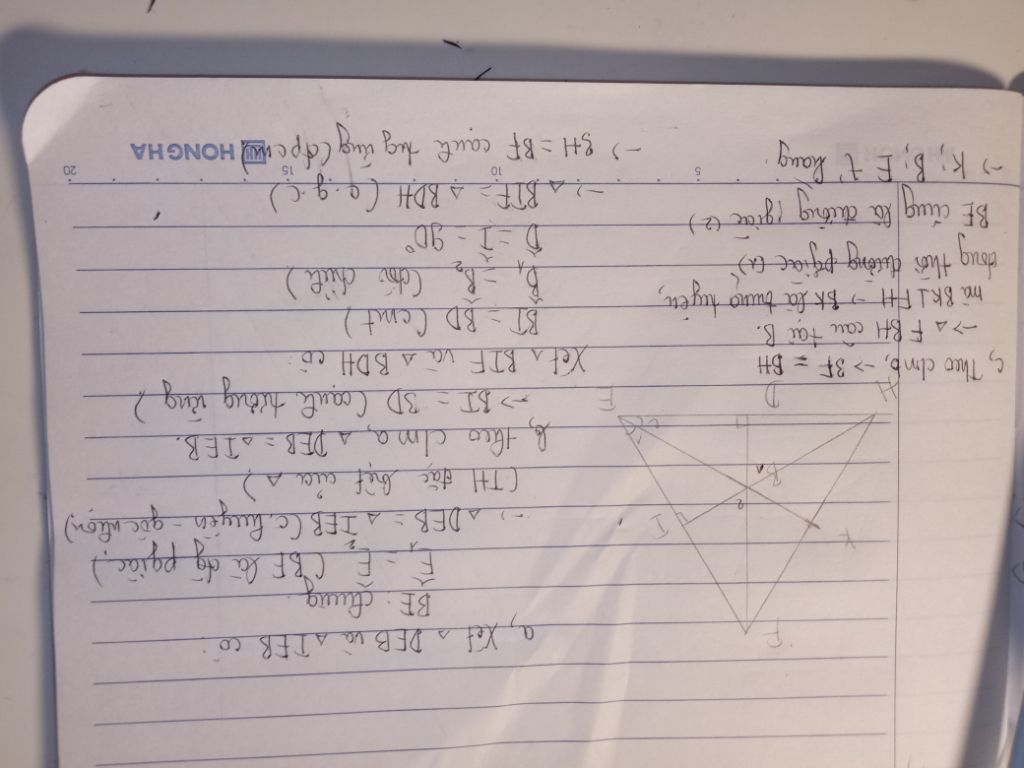 a, Xét △ DEB và △ IEB có:
BE chung
Ê1 = Ê2 (BE là đg pgiác)
→ △DEB = △ IEB (c.huyền - góc nhọn)
(TH đặc biệt của △)
b, theo clm a, △ DEB = △IEB.
→ BI = BD (cạnh tương ứng)
Xét △ BIF và △ BDH có:
BI = BD (cmt)
B̂1 = B̂2 (đối đỉnh)
D̂ = Î = 90°
→ △ BIF = △ BDH (g.c.g)
→ BH = BF cạnh tg ứng (đpcm)
F
K
I
2
B1
E
D
H
c, Theo clmb, → BF = BH
→ △ FBH cân tại B.
mà BK⊥FH → BK là trung tuyến,
đồng thời đường pgiác (1)
BE cũng là đường pgiác (2)
→ K, B, E t' hàng.
HONG HA
5
10
15
20